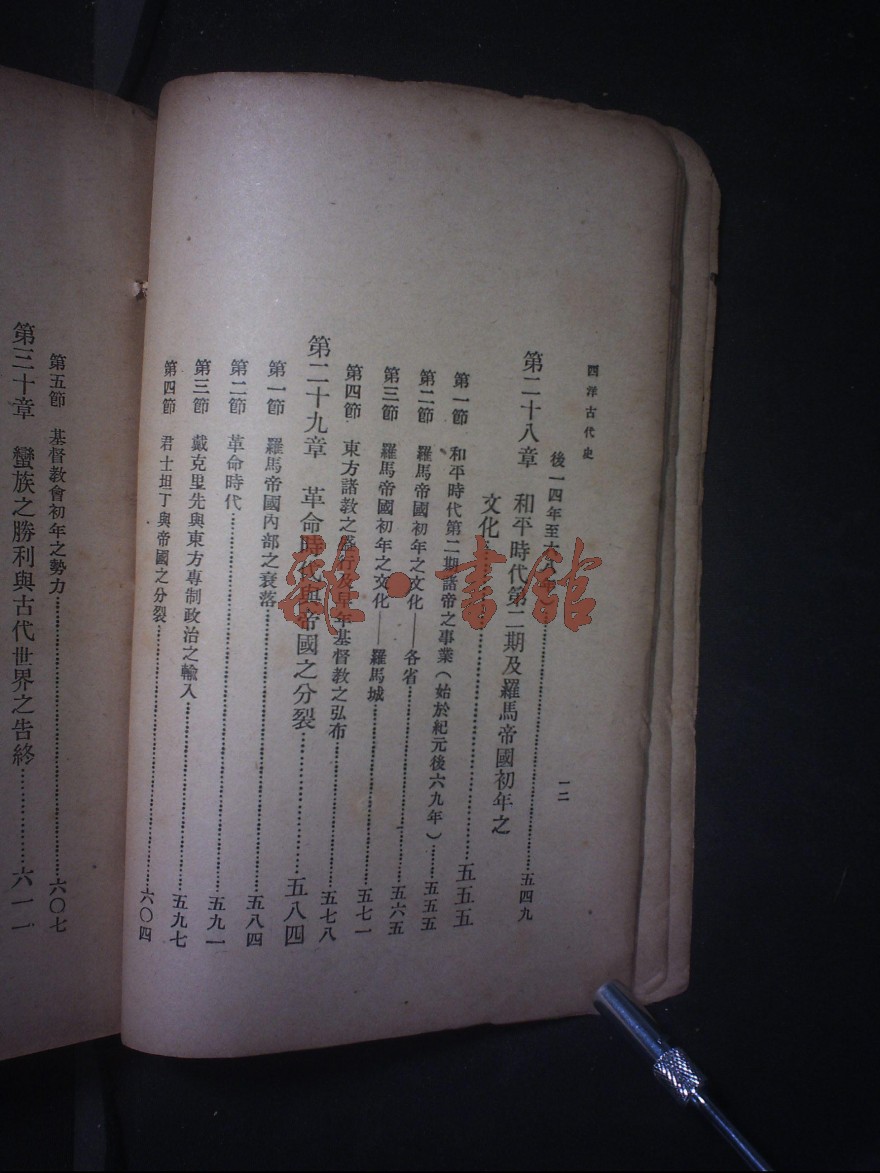 西洋古代史
一二
後一四年至六八年……五四九
第二十八章 和平時代第二期及羅馬帝國初年之
文化……五五五
第一節 和平時代第二期諸帝之事業（始於紀元後六九年）……五五五
第二節 羅馬帝國初年之文化——各省……五六五
第三節 羅馬帝國初年之文化——羅馬城……五七一
第四節 東方諸教之盛行及早年基督教之弘布……五七八
第二十九章 革命時代與帝國之分裂……五八四
第一節 羅馬帝國內部之衰落……五八四
第二節 革命時代……五九一
第三節 戴克里先與東方專制政治之輸入……五九七
第四節 君士坦丁與帝國之分裂……六〇四
第五節 基督教會初年之勢力……六〇七
第三十章 蠻族之勝利與古代世界之告終……六一一
雜·書館